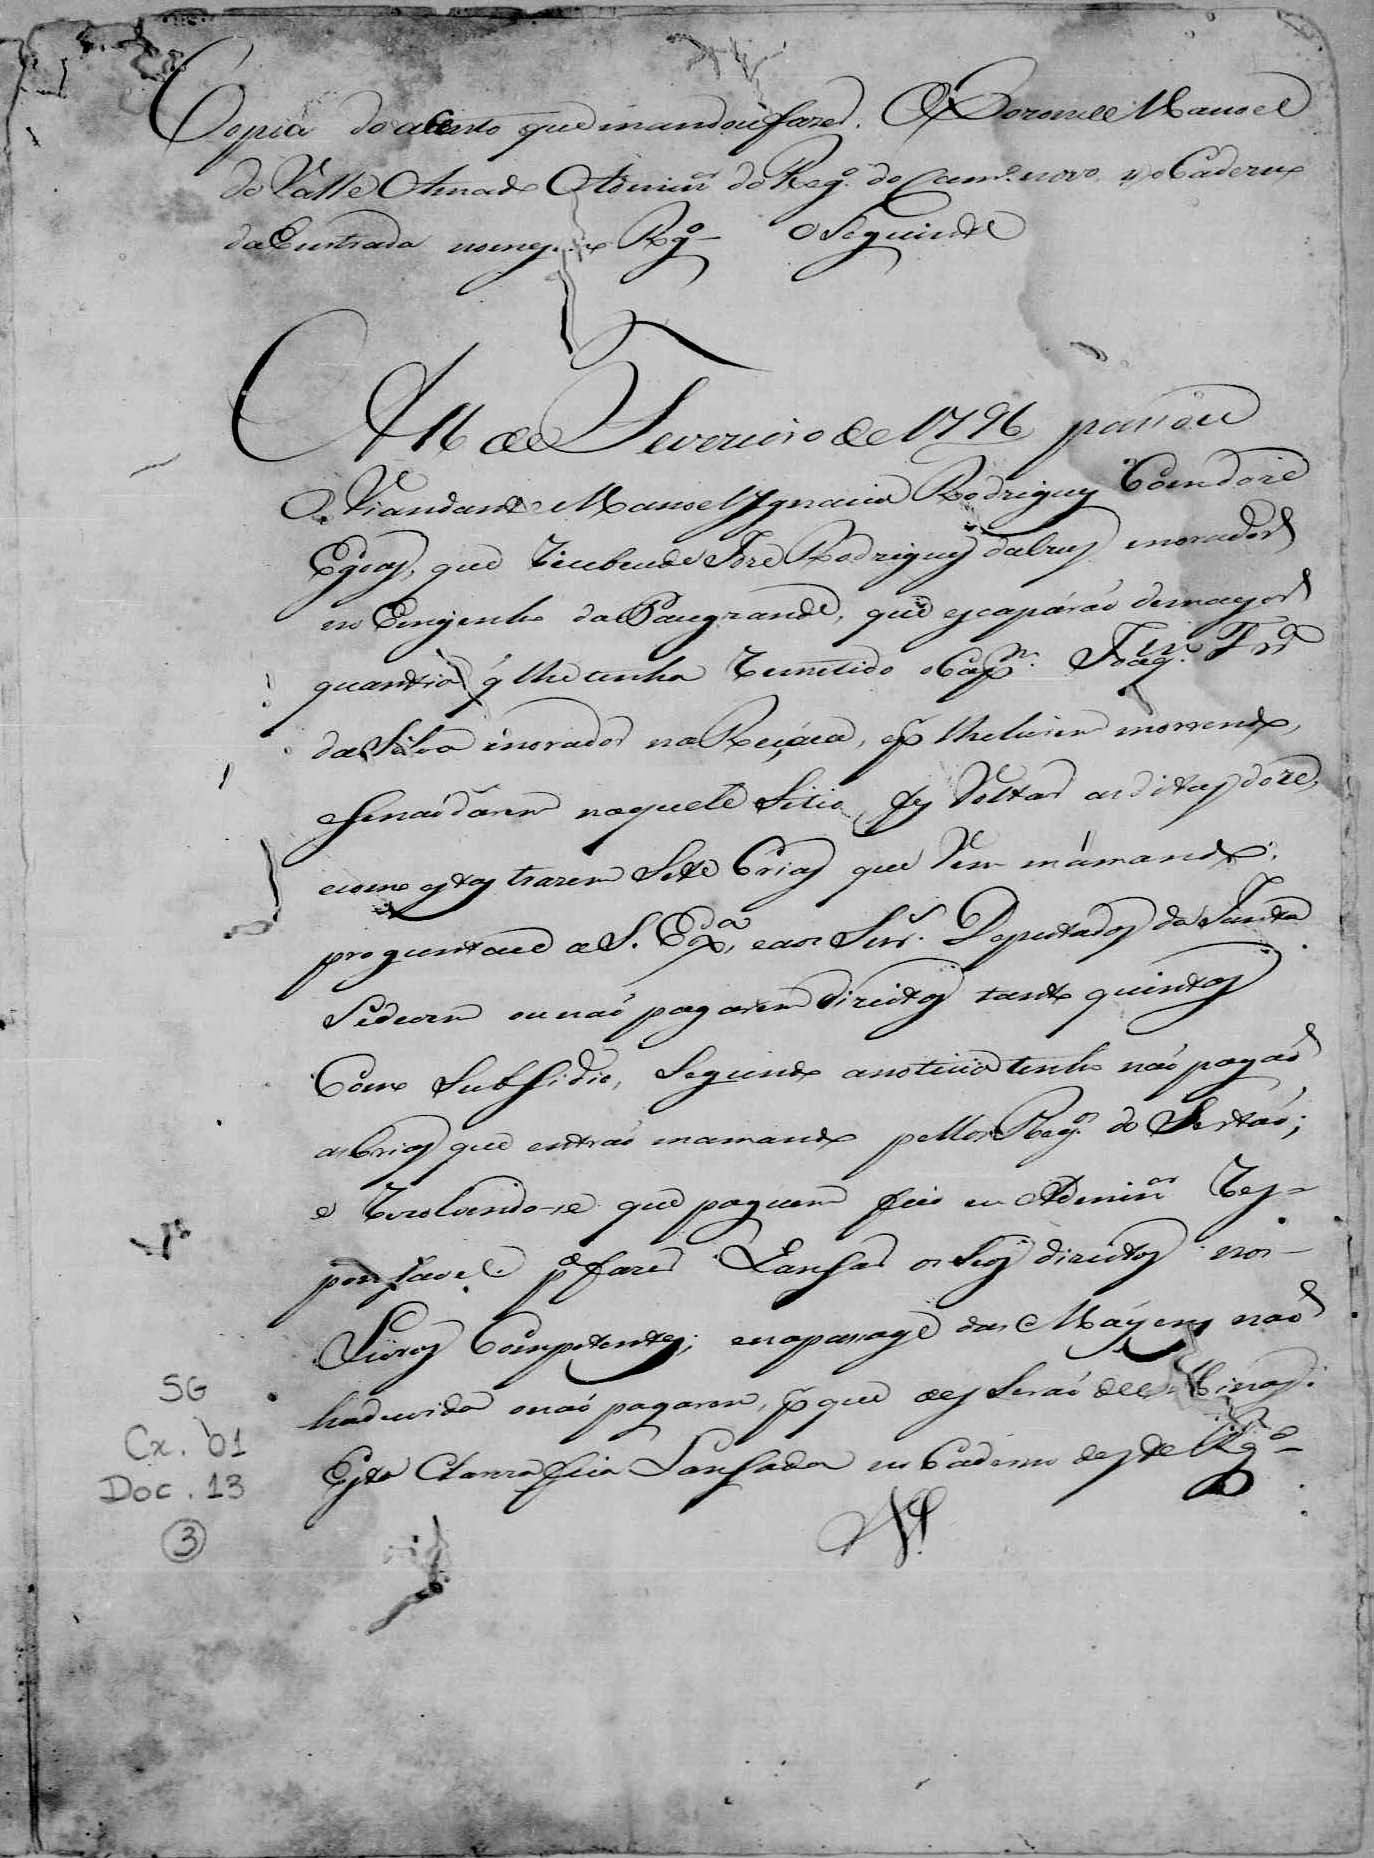 Copia do acento que mandou fazer O Coronel Manoel
do Valle Amado Admin.or do Reg.o do Cam.o novo no Caderno
da Entrada no mes... Rg.o O Seguinte
A 16 de Fevereiro de 1796 passou
O Viandante Manoel Ignacio Rodrigues Com doze
Egoas, que Recebeu de Joze Rodrigues da Cruz morador
no Engenho da Paugrande, que escapárão de mayor
quantia q̃ lhe tinha Remitido o Cap.m Joaq.m Jozé
da Silva morador na, e p.r lhe hirem morrendo,
e senaõ darem naquele Sitio, fes Voltar as ditas doze,
e como estas trazem Sete Crias que Vem mamando:
proguntace a S. Ex.cia, e aos Snr.s Deputados da Junta
Sedevem ou naõ pagarem direitos tanto quintos
Como Subsidio, Segundo a noticia tenho não pagaõ
as Crias que entraõ mamando pellos Reg.os do Sertaõ;
e Rezolvendo-se que paguem fico eu Admin.or Res-
ponsavel p.a fazer Lansar os Seos direitos nos
Livros Competentes; e na passage das Máyens naõ
ha duvida onaõ pagarem, p.r que elles Seraõ de Minas:
Esta Clareza fica Lansada no Caderno deste Rg.o
SG
Cx. 01
Doc. 13
3